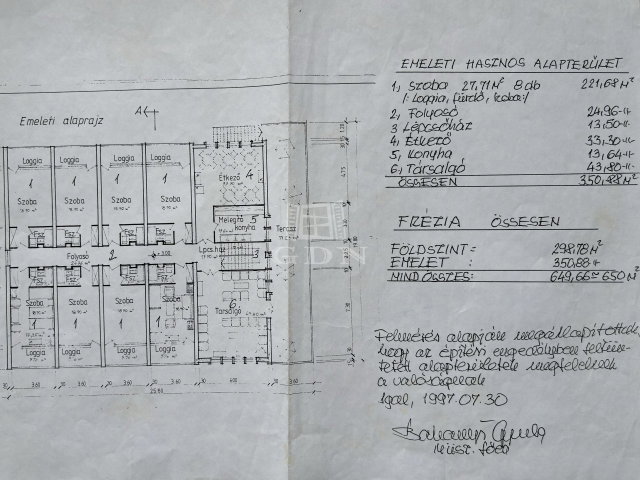 Emeleti alaprajz
A
Loggia
Loggia
Loggia
Loggia
1
1
1
1
Szoba
Szoba
Szoba
Szoba
Étkező
4
Melegítő
konyha
5
Terasz
Fsz.
Fsz.
Fsz.
Fsz.
Folyosó
2
Lpcs.ház
3
Fsz.
Fsz.
Fsz.
Fsz.
Szoba
Szoba
Szoba
Szoba
1
1
1
1
Loggia
Loggia
Loggia
Loggia
6
Társalgó
3.60
3.60
3.60
3.60
6.00
3.60
25.80
GDN
EMELETI HASZNOS ALAPTERÜLET
1, Szoba 27,71 M² 8 db 221,68 M²
/: Loggia, fürdő, szoba :/
2, Folyosó 24,96 -"-
3 Lépcsőház 13,50 -"-
4, Étkező 33,30 -"-
5, Konyha 13,64 -"-
6, Társalgó 43,80 -"-
ÖSSESEN 350,88 M²
FRÉZIA ÖSSESEN
FÖLDSZINT = 298,78 M²
EMELET = 350,88 -"-
MINDÖSSZES: 649,66 ≈ 650 M²
Felmérés alapján megállapítottak,
hogy az építési engedélyben feltün-
tetett alapterületek megfelelnek
a valóságnak
Igal, 1997.07.30
Gyula
Műsz. főea